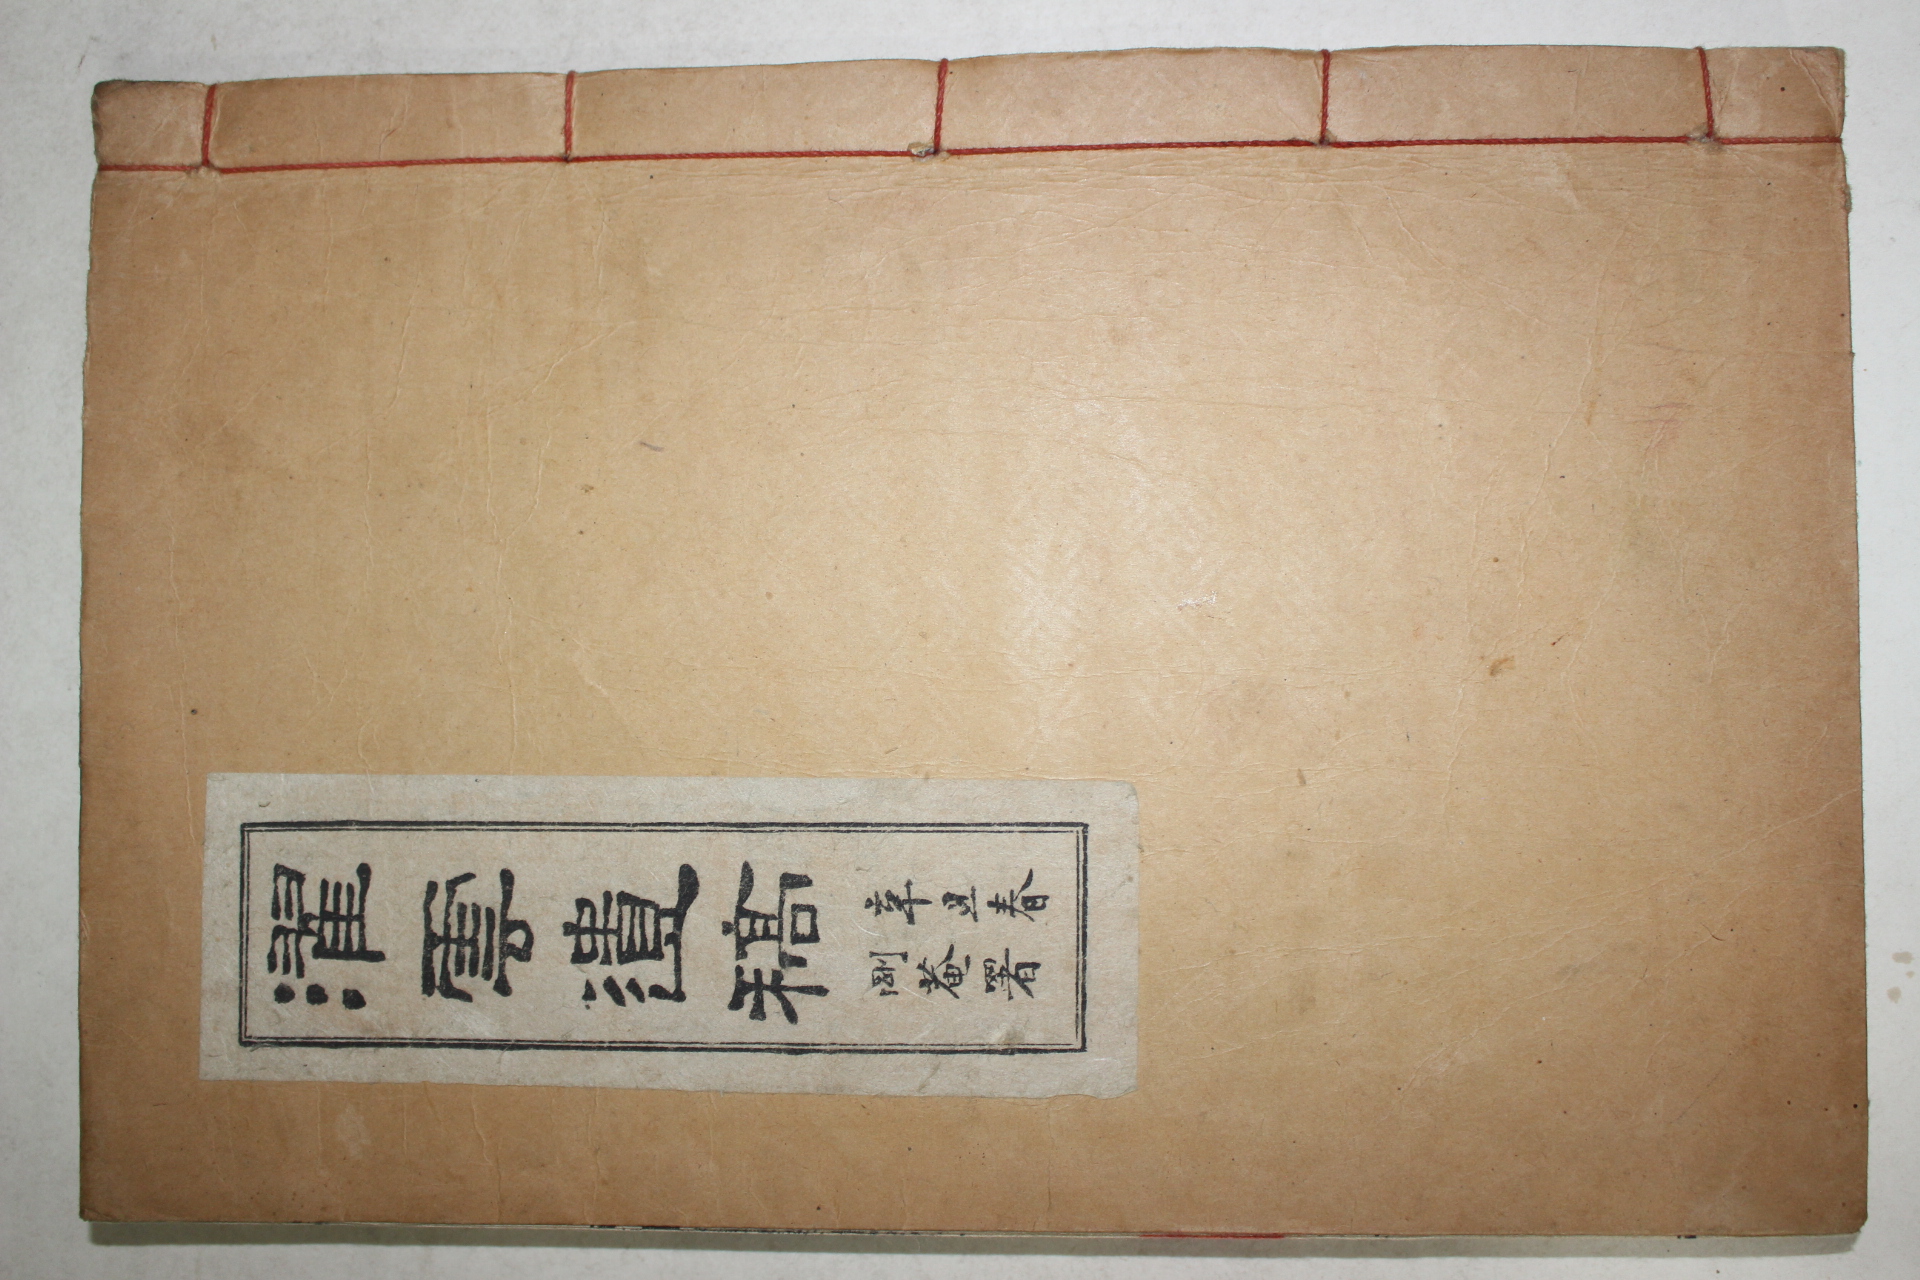 濯雲遺稿
辛丑春
剛菴署